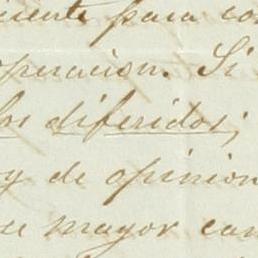 ciente para co
operacion. Si
los diferidos;
y de opinion
su mayor can